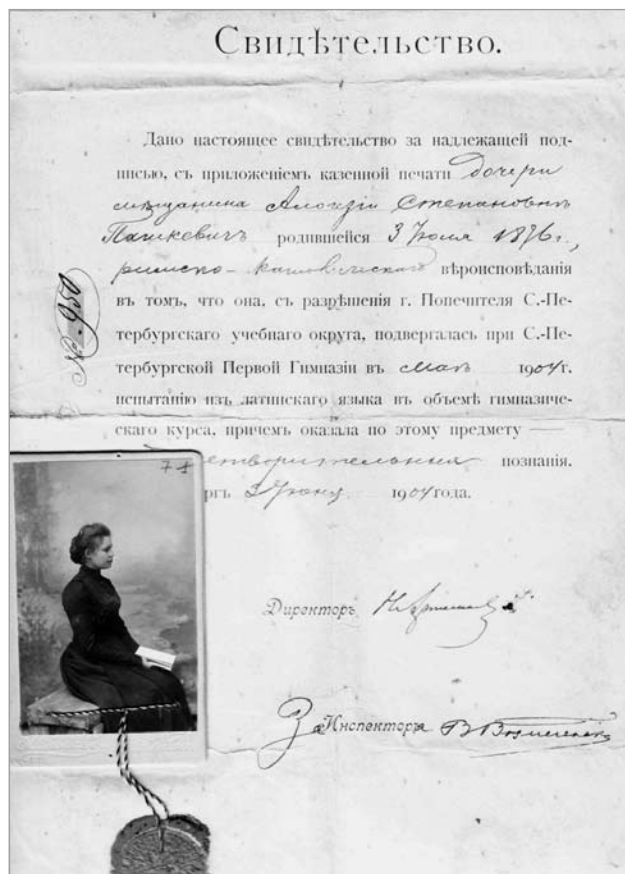 Свидѣтельство.
Дано настоящее свидѣтельство за надлежащей под-
писью, съ приложеніемъ казенной печати дочери
мѣщанина Алоизіи Степановнѣ
Пашкевичъ родившейся 3 Іюля 1876 г.,
римско-католическаго вѣроисповѣданія
въ томъ, что она, съ разрѣшенія г. Попечителя С.-Пе-
тербургскаго учебнаго округа, подвергалась при С.-Пе-
тербургской Первой Гимназіи въ маѣ 1904 г.
испытанію изъ латинскаго языка въ объемѣ гимназиче-
скаго курса, причемъ оказала по этому предмету —
етворительныя познанія.
ргъ 3 Іюня 1904 года.
Директоръ
За Инспектора